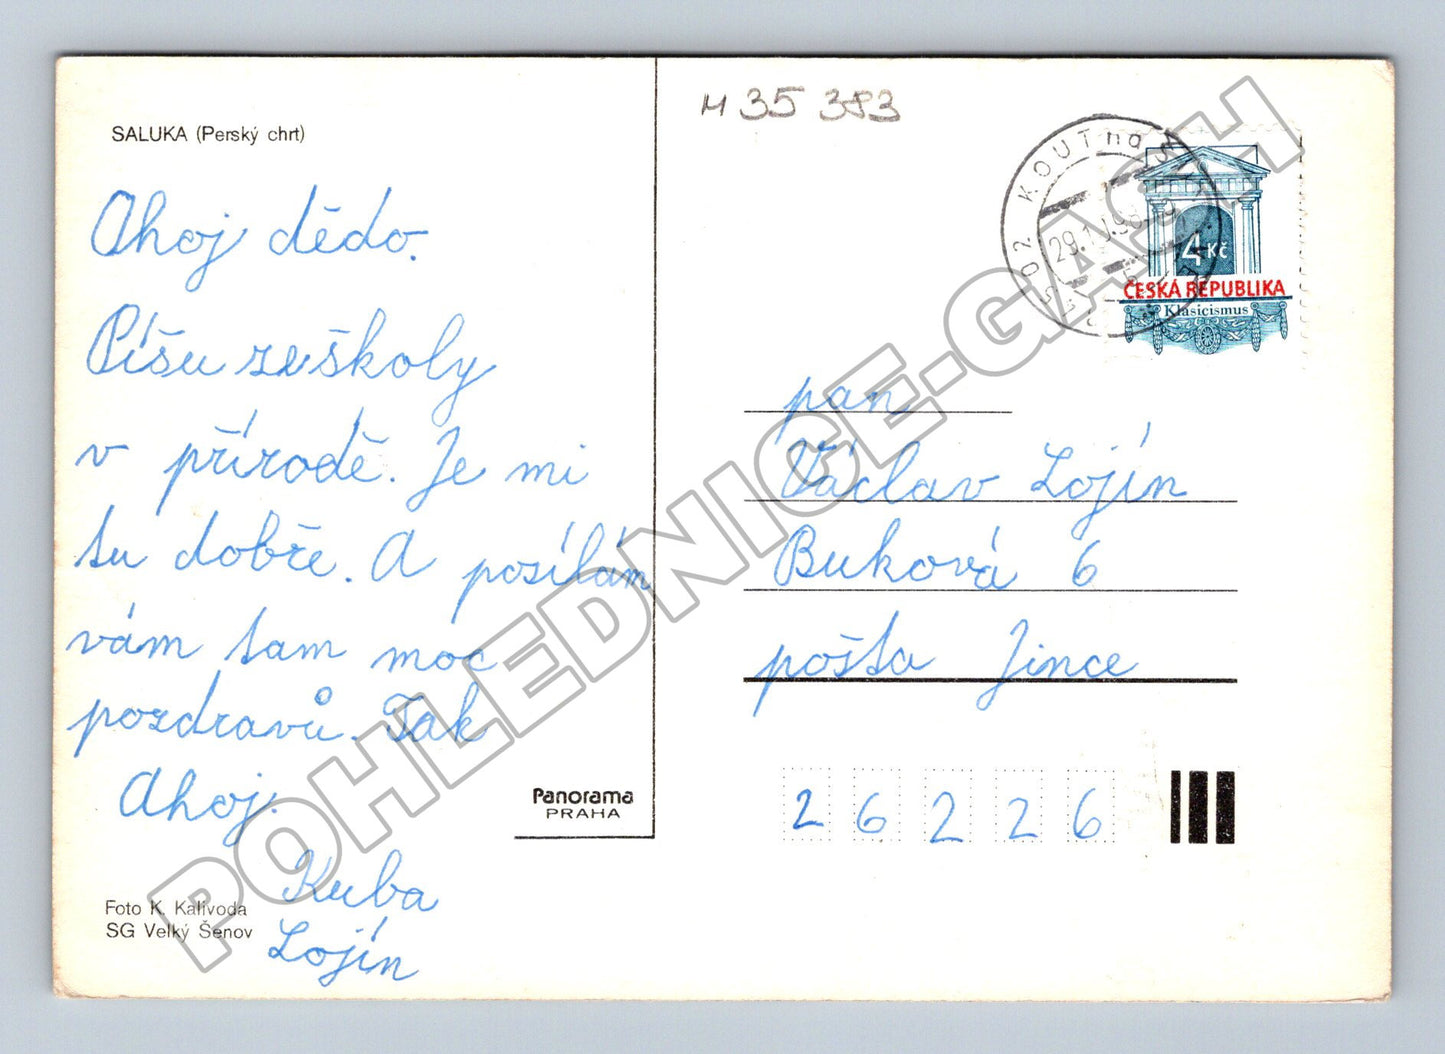 SALUKA (Perský chrt)
Ahoj dědo.
Píšu ze školy
v přírodě. Je mi
tu dobře. A posílám
vám tam moc
pozdravů. Tak
Ahoj.
Kuba
Lojín
Foto K. Kalivoda
SG Velký Šenov
Panorama
PRAHA
M 35 383
KOUT na
4 Kč
ČESKÁ REPUBLIKA
Klasicismus
pan
Václav Lojín
Buková 6
pošta Jince
26226
POHLEDNICE-GASH